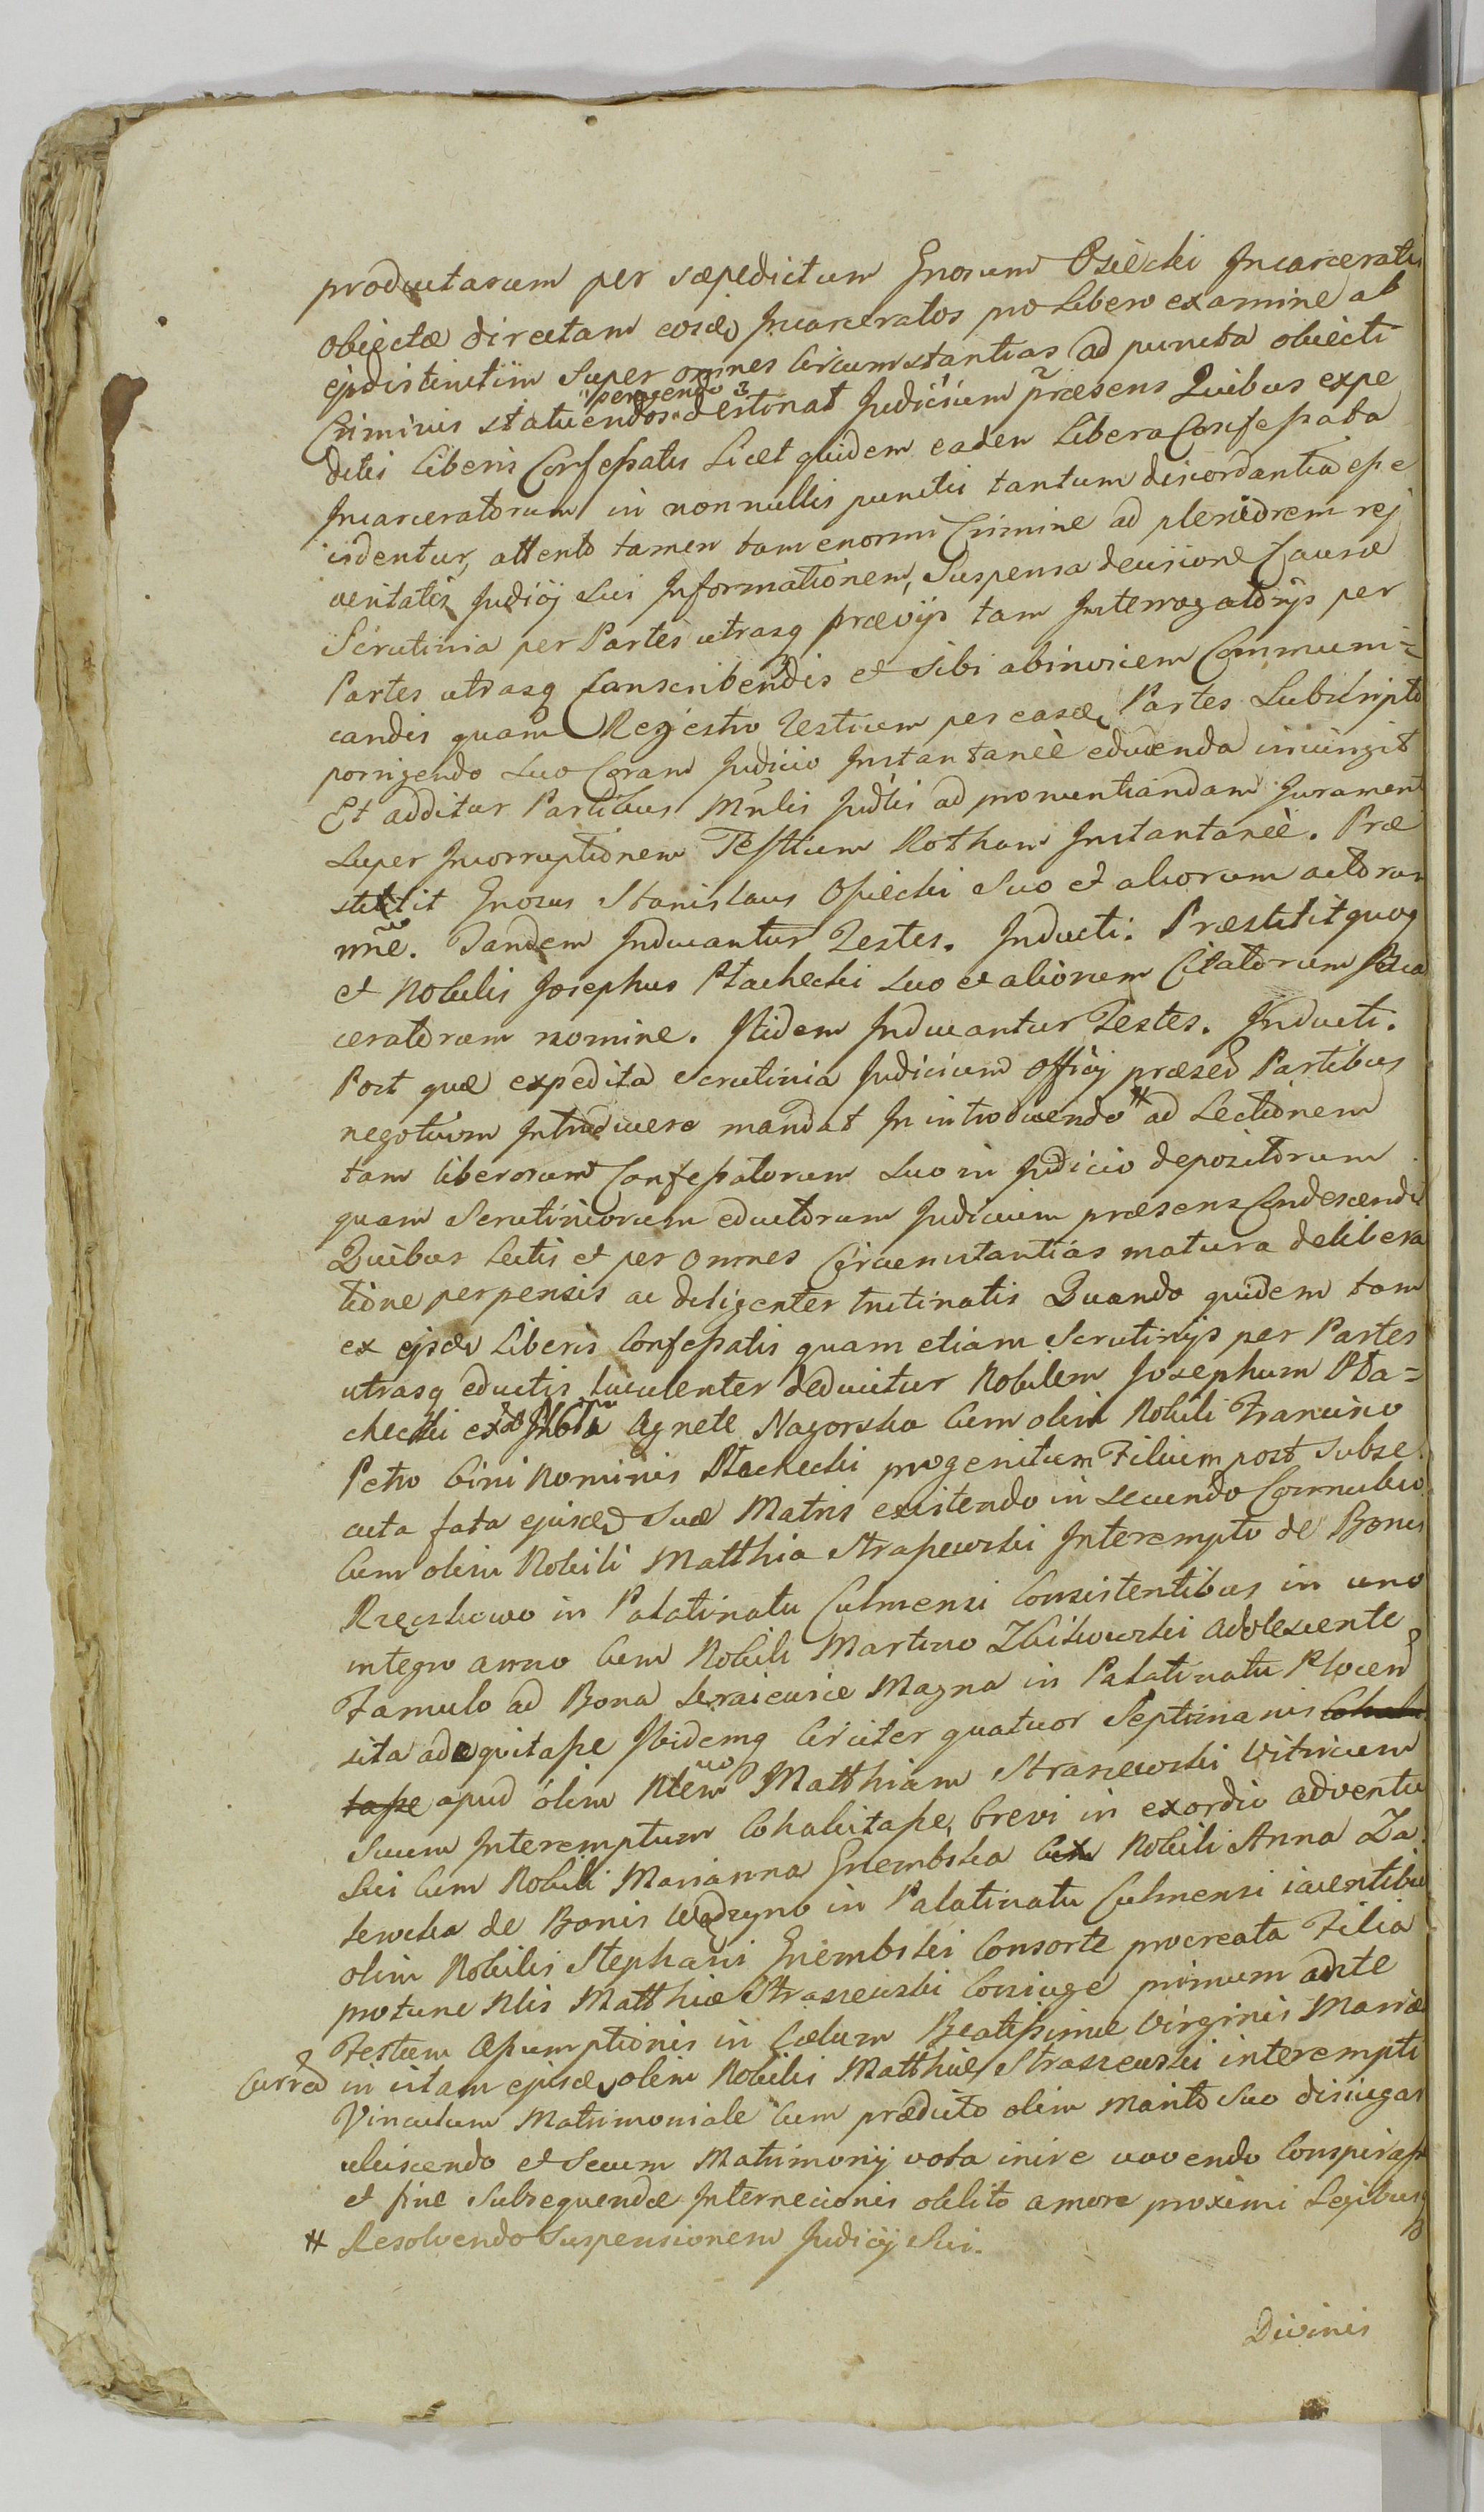 productarum per sæpedictum Gnosum Osiecki Incarceratis
obiectæ directam eosd Incarceratos pro libero examine ab
ejsdistinctim Super omnes Circumstantias ad puncta obiecti
"peragendo
Criminis statuendos" destinat Judicium præsens Quibus expe
ditis liberis Confessatis Licet quidem eadem libera Confessata
Incarceratorum in nonnullis punctis tantum discordantia esse
videntur, attento tamen tam enormi Crimine ad pleniorem rej
veritatis Judicij Sui Informationem, Suspensa decisione Causæ
Scrutinia per Partes utrasq prævijs tam Interrogatorijs per
Partes utrasq Conscribendis et sibi abinvicem Communi=
candis quam Regestro Testium per easd Partes Subscripto
porrigendo Suo Coram Judicio Instantaneè educenda iniungit
Et additur Partibus Mnlis Judlis ad pronuntiandam Jurament
Super Incorruptionem Testium Rotham Instantaneè. Præ
stitit Gnosus Stanislaus Osiecki Suo et aliorum actorum
nne. Tandem Inducantur Testes. Inducti. Præstitit quoq
et Nobilis Josephus Ptachecki Suo et aliorum Citatorum Incar
ceratorum nomine. Itidem Inducantur Testes. Inducti.
Post quæ expedita Scrutinia Judicium Officij præsens Partibus
negotium Introducere mandat In introducendo # ad Lectionem
tam liberorum Confessatorum Suo in Judicio depositorum
quam Scrutiniorum eductorum Judicium præsens Condescendit
Quibus lectis et per omnes Circumstantias matura delibera
tione perpensis ac diligenter trutinatis Quando quidem tam
ex ejsd Liberis Confessatis quam etiam Scrutinijs per Partes
utrasq eductis luculenter deducitur Nobilem Josephum Pta=
checki ex Agnete Nagorska Cum olim Nobili Francisco
Petro bini Nominis Ptachecki progenitum Filium post subse
cuta fata ejusd Suæ Matris existendo in secundo Connubio
Cum olim Nobili Matthia Straszewski Interempto de Bonis
Rzęczkowo in Palatinatu Culmensi Consistentibus in uno
integro anno Cum Nobili Martino Zbikowski adolescente
Famulo ad Bona Magna in Palatinatu Plocen
sita adequitasse Ibidemq Circiter quatuor Septimanis Coha
tasse apud olim Matthiam Straszewski Vitricum
Suum Interemptum Cohabitasse, brevi in exordio adventu
Sui Cum Nobili Marianna Gnembska Nobili Anna Za
lewska de Bonis in Palatinatu Culmensi iacentibus
olim Nobilis Stephani Gnembski Consorte procreata Filia
protunc Nlis Matthiæ Straszewski Coniuge primum ante
Festum Assumptionis in Cælum Beatissimæ Virginis Mariæ
in vitam ejusd olim Nobilis Matthiæ Straszewski interempti
Vinculum Matrimoniale Cum prædicto olim Marito Suo
et Secum Matrimonij vota inire vovendo Conspirasse
et fine Subsequendæ Internecionis oblito amore proximi Legibusq
# Resolvendo Suspensionem Judicij Sui.
Divinis